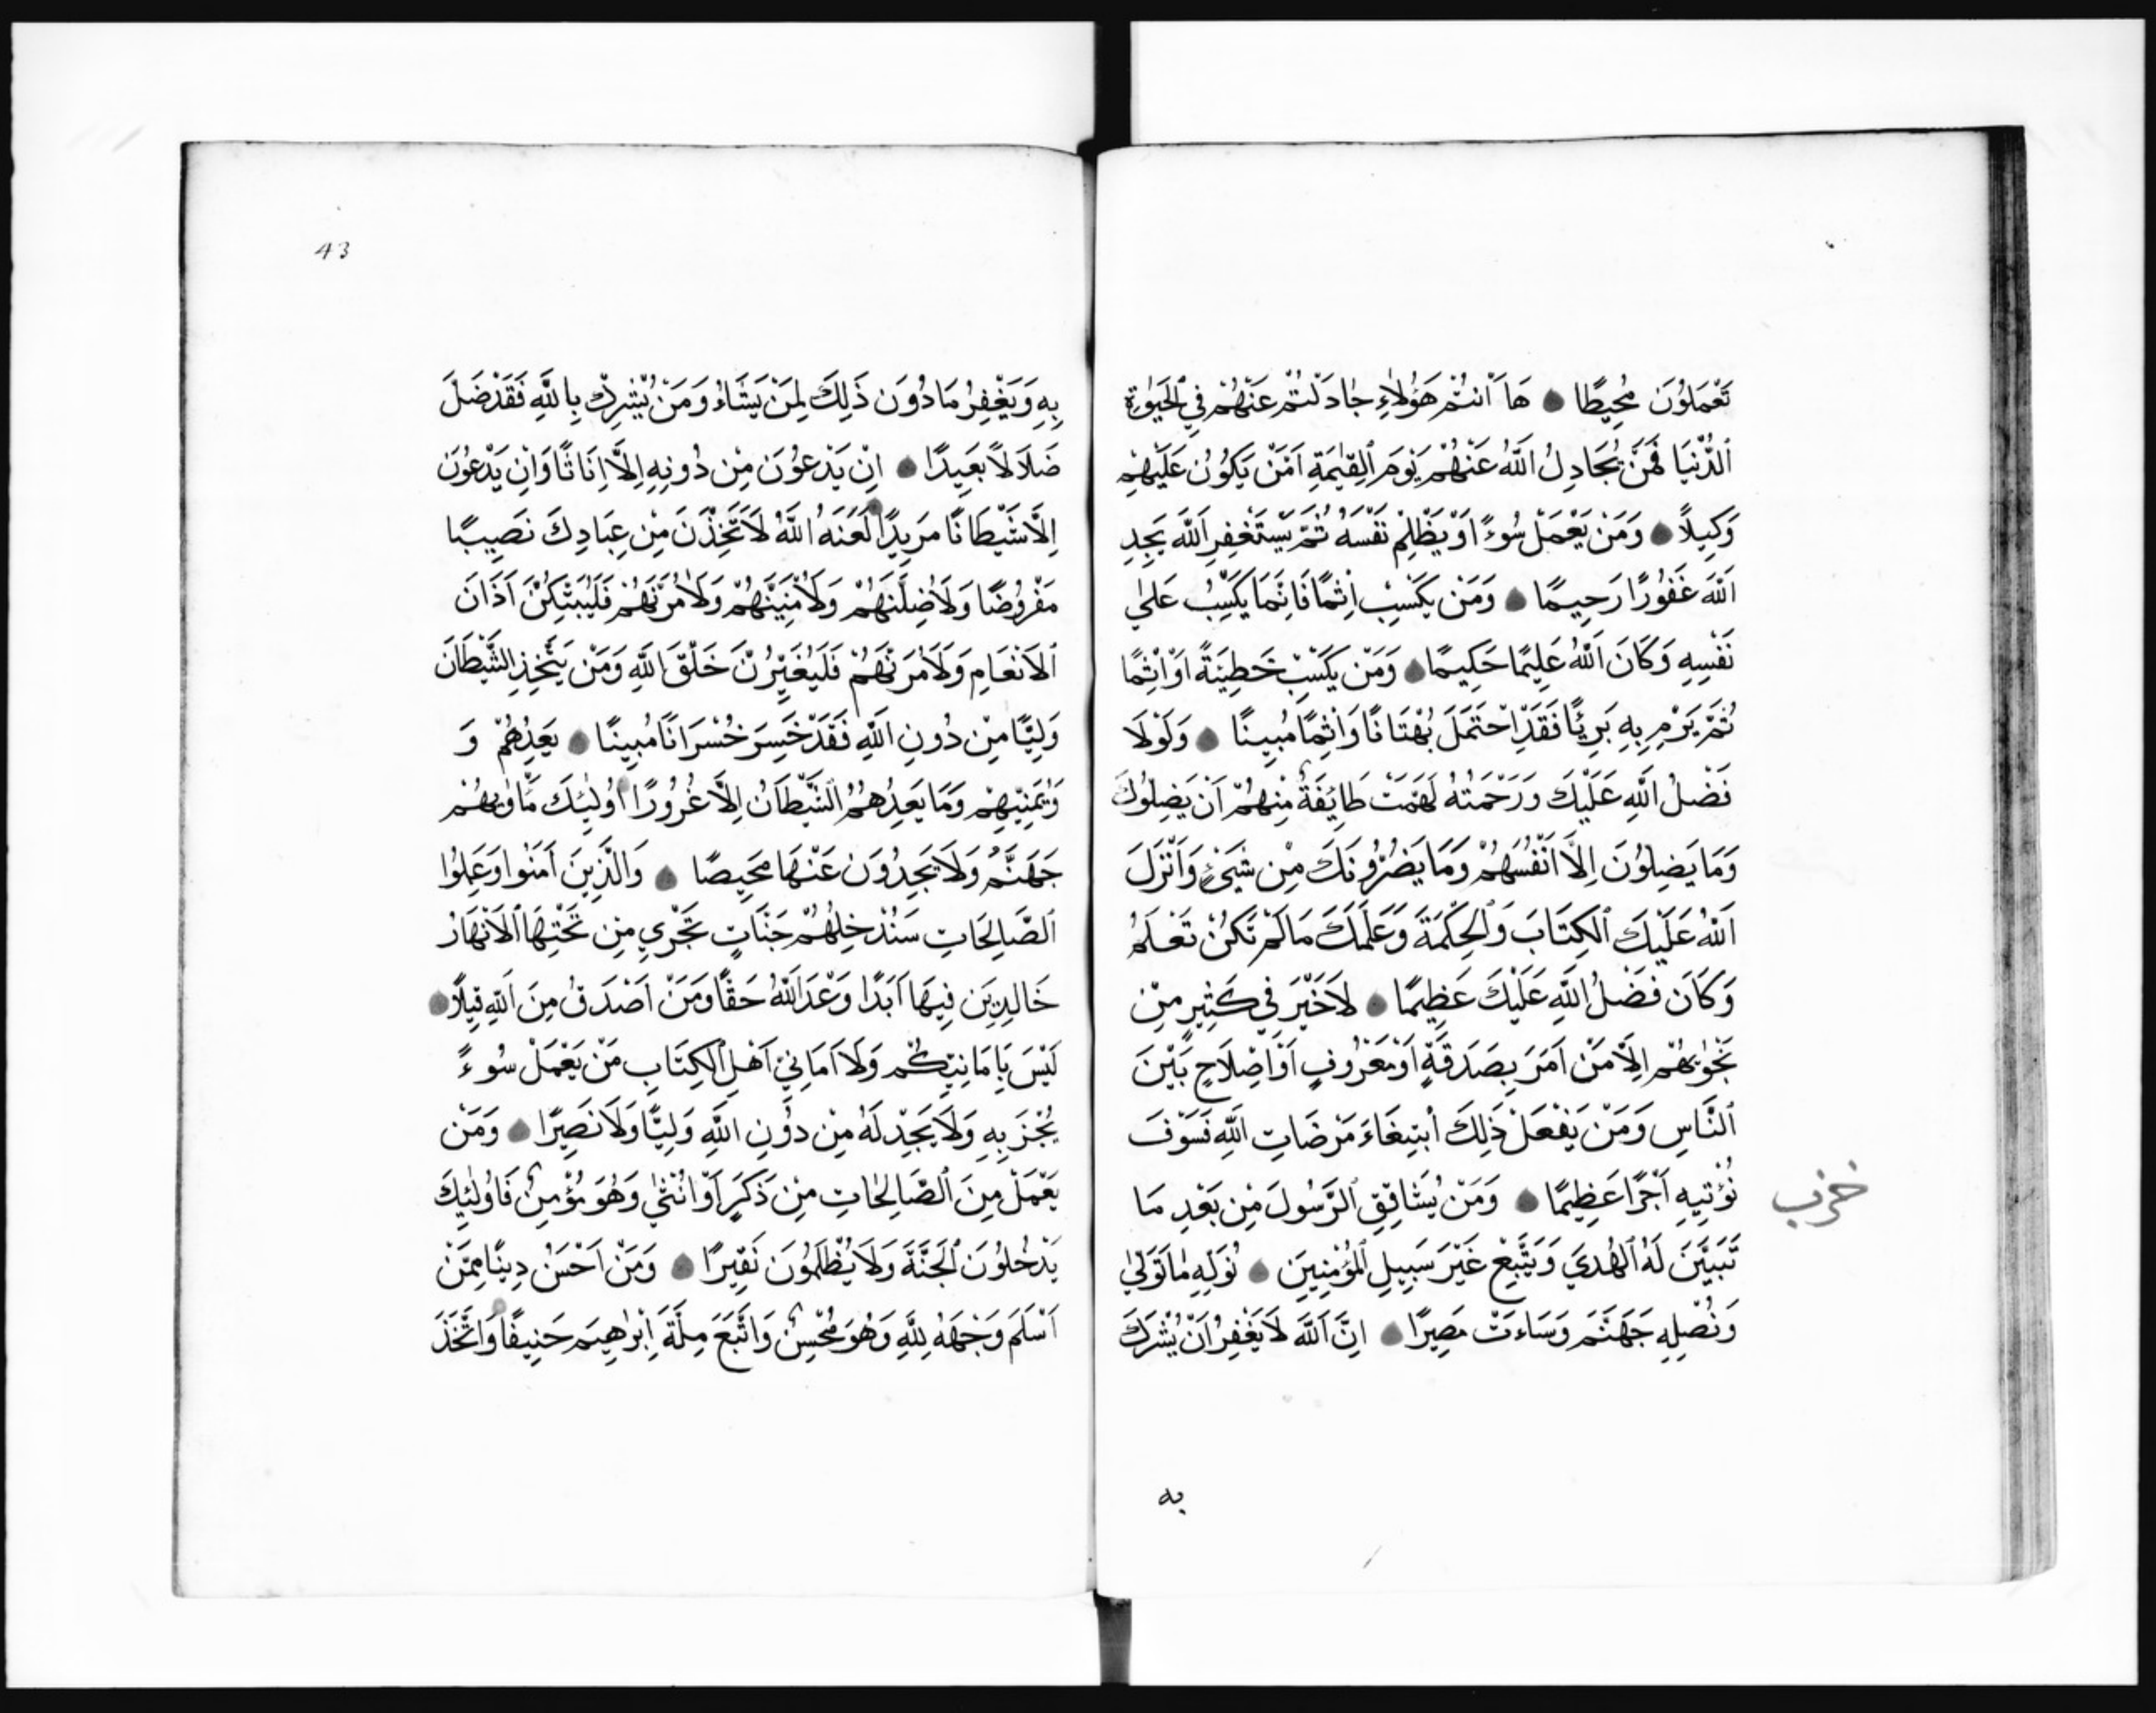 تَعْمَلُونَ مُحِيطًا هَا اَنْتُمْ هَؤُلَاءِ جَادَلْتُمْ عَنْهُمْ فِي الْحَيٰوةِ
الدُّنْيَا فَمَنْ يُجَادِلُ اللّٰهَ عَنْهُمْ يَوْمَ الْقِيٰمَةِ اَمَّنْ يَكُونُ عَلَيْهِمْ
وَكِيلًا وَمَنْ يَعْمَلْ سُوءًا اَوْ يَظْلِمْ نَفْسَهُ ثُمَّ يَسْتَغْفِرِ اللّٰهَ يَجِدِ
اللّٰهَ غَفُورًا رَحِيمًا وَمَنْ يَكْسِبْ اِثْمًا فَاِنَّمَا يَكْسِبُ عَلٰي
نَفْسِهِ وَكَانَ اللّٰهُ عَلِيمًا حَكِيمًا وَمَنْ يَكْسِبْ خَطِيئَةً اَوْ اِثْمًا
ثُمَّ يَرْمِ بِهِ بَرِيئًا فَقَدِ احْتَمَلَ بُهْتَانًا وَاِثْمًا مُبِينًا وَلَوْلَا
فَضْلُ اللّٰهِ عَلَيْكَ وَرَحْمَتُهُ لَهَمَّتْ طَايِفَةٌ مِنْهُمْ اَنْ يَضِلُّوكَ
وَمَا يَضِلُّونَ اِلَّا اَنْفُسَهُمْ وَمَا يَضُرُّونَكَ مِنْ شَيْءٍ وَاَنْزَلَ
اللّٰهُ عَلَيْكَ الْكِتَابَ وَالْحِكْمَةَ وَعَلَّمَكَ مَا لَمْ تَكُنْ تَعْلَمُ
وَكَانَ فَضْلُ اللّٰهِ عَلَيْكَ عَظِيمًا لَا خَيْرَ فِي كَثِيرٍ مِنْ
نَجْوٰيهُمْ اِلَّا مَنْ اَمَرَ بِصَدَقَةٍ اَوْ مَعْرُوفٍ اَوْ اِصْلَاحٍ بَيْنَ
النَّاسِ وَمَنْ يَفْعَلْ ذَلِكَ اْبتِغَاءَ مَرْضَاتِ اللّٰهِ فَسَوْفَ
نُؤْتِيهِ اَجْرًا عَظِيمًا وَمَنْ يُشَاقِقِ الرَّسُولَ مِنْ بَعْدِ مَا
تَبَيَّنَ لَهُ الْهُدَي وَيَتَّبِعْ غَيْرَ سَبِيلِ الْمُؤْمِنِينَ نُوَلِّهِ مَا تَوَلّٰي
وَنُصْلِهِ جَهَنَّمَ وَسَاءَتْ مَصِيرًا اِنَّ اللّٰهَ لَا يَغْفِرُ اَنْ يُشْرَكَ
حزب
به
43
بِهِ وَيَغْفِرُ مَا دُونَ ذَلِكَ لِمَنْ يَشَاءُ وَمَنْ يُشْرِكْ بِاللّٰهِ فَقَدْ ضَلَّ
ضَلَالًا بَعِيدًا اِنْ يَدْعُونَ مِنْ دُونِهِ اِلَّا اِنَاثًا وَاِنْ يَدْعُونَ
اِلَّا شَيْطَانًا مَرِيدًا لَعَنَهُ اللّٰهُ لَاَتَّخِذَنَّ مِنْ عِبَادِكَ نَصِيبًا
مَفْرُوضًا وَلَاُضِلَّنَّهُمْ وَلَاُمَنِّيَنَّهُمْ وَلَاٰمُرَنَّهُمْ فَلَيُبَتِّكُنَّ اَذَانَ
الْاَنْعَامِ وَلَاٰمُرَنَّهُمْ فَلَيُغَيِّرُنَّ خَلْقَ اللّٰهِ وَمَنْ يَتَّخِذِ الشَّيْطَانَ
وَلِيًّا مِنْ دُونِ اللّٰهِ فَقَدْ خَسِرَ خُسْرَانًا مُبِينًا يَعِدُهُمْ وَ
وَيُمَنِّيهِمْ وَمَا يَعِدُهُمُ الشَّيْطَانُ اِلَّا غُرُورًا اُولٰئِكَ مَاْوٰيهُمْ
جَهَنَّمُ وَلَا يَجِدُونَ عَنْهَا مَحِيصًا وَالَّذِينَ اَمَنُوا وَعَمِلُوا
الصَّالِحَاتِ سَنُدْخِلُهُمْ جَنَّاتٍ تَجْرِي مِنْ تَحْتِهَا الْاَنْهَارُ
خَالِدِينَ فِيهَا اَبَدًا وَعْدَ اللّٰهِ حَقًّا وَمَنْ اَصْدَقُ مِنَ اللّٰهِ قِيلًا
لَيْسَ بِاَمَانِيِّكُمْ وَلَا اَمَانِيِّ اَهْلِ الْكِتَابِ مَنْ يَعْمَلْ سُوءً
يُجْزَ بِهِ وَلَا يَجِدْ لَهُ مِنْ دُونِ اللّٰهِ وَلِيًّا وَلَا نَصِيرًا وَمَنْ
يَعْمَلْ مِنَ الصَّالِحَاتِ مِنْ ذَكَرٍ اَوْ اُنْثٰي وَهُوَ مُؤْمِنٌ فَاُولٰئِكَ
يَدْخُلُونَ الْجَنَّةَ وَلَا يُظْلَمُونَ نَقِيرًا وَمَنْ اَحْسَنُ دِينًا مِمَّنْ
اَسْلَمَ وَجْهَهُ لِلّٰهِ وَهُوَ مُحْسِنٌ وَاتَّبَعَ مِلَّةَ اِبْرٰهِيمَ حَنِيفًا وَاتَّخَذَ